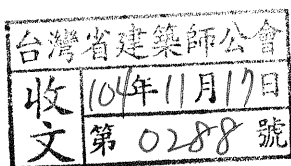 台灣省建築師公會
收文
104年11月17日
第 0288 號